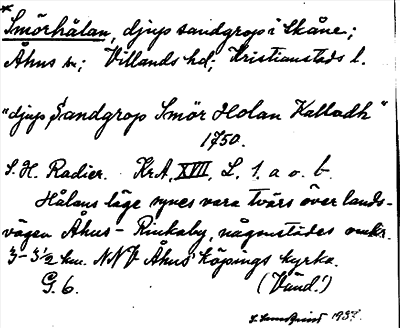 * Smörhålan, djup sandgrop i Skåne;
Åhus sn; Villands hd; Kristianstads l.
"djup Sandgrop Smör Holan Kalladh"
1750.
S. H. Radier. KrA, XVII, L. 1. a o. b.
Hålans läge synes vara tvärs över lands-
vägen Åhus - Rinkaby, någonstädes omkr.
3-3 1/2 km. NNV Åhus' köpings kyrka.
G. 6. (Vänd!)
1937.